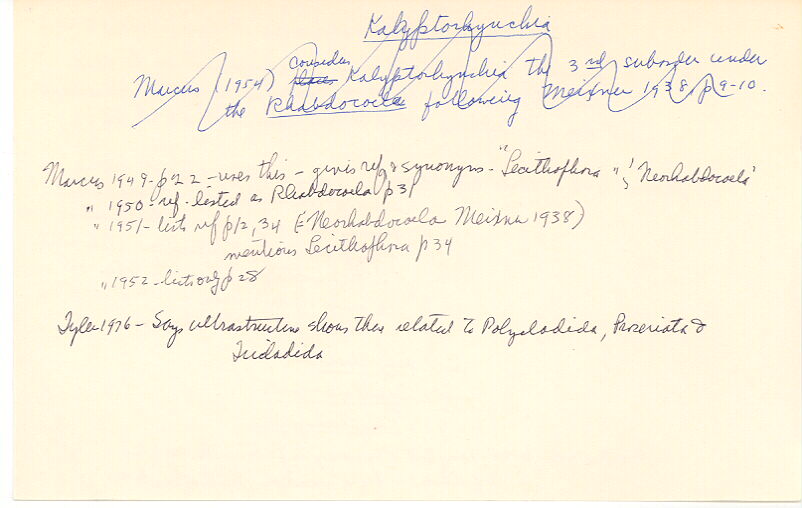 Kalyptorhynchia
considers
Marcus (1954) places Kalyptorhynchia the 3rd suborder under
the Rhabdocoela following Meixner 1938 p9-10.
Marcus 1949-p22-uses this-gives ref & synonyms-"Lecithophora", "Neorhabdocoela"
" 1950 ref-listed as Rhabdocoela p31
" 1951-lists ref p12, 34 (=Neorhabdocoela Meixner 1938)
mentions Lecithophora p34
" 1952-lists only p28
Tyler 1976-Says ultrastructure shows this related to Polycladida, Proseriata &
Tricladida